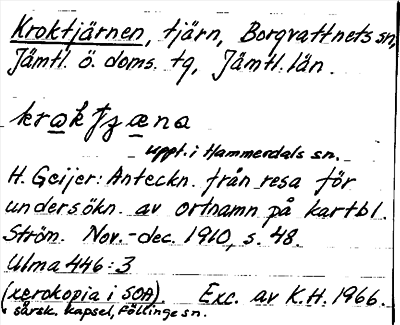 Kroktjärnen, tjärn, Borgvattnets sn,
Jämtl. ö. doms. tg, Jämtl. län.
uppt. i Hammerdals sn.
H. Geijer: Anteckn. från resa för
undersökn. av ortnamn på kartbl.
Ström. Nov.-dec. 1910, s. 48.
Ulma 446:3
(xerokopia i SOA). Exc. av K.H. 1966.
särsk. kapsel, Föllinge sn.